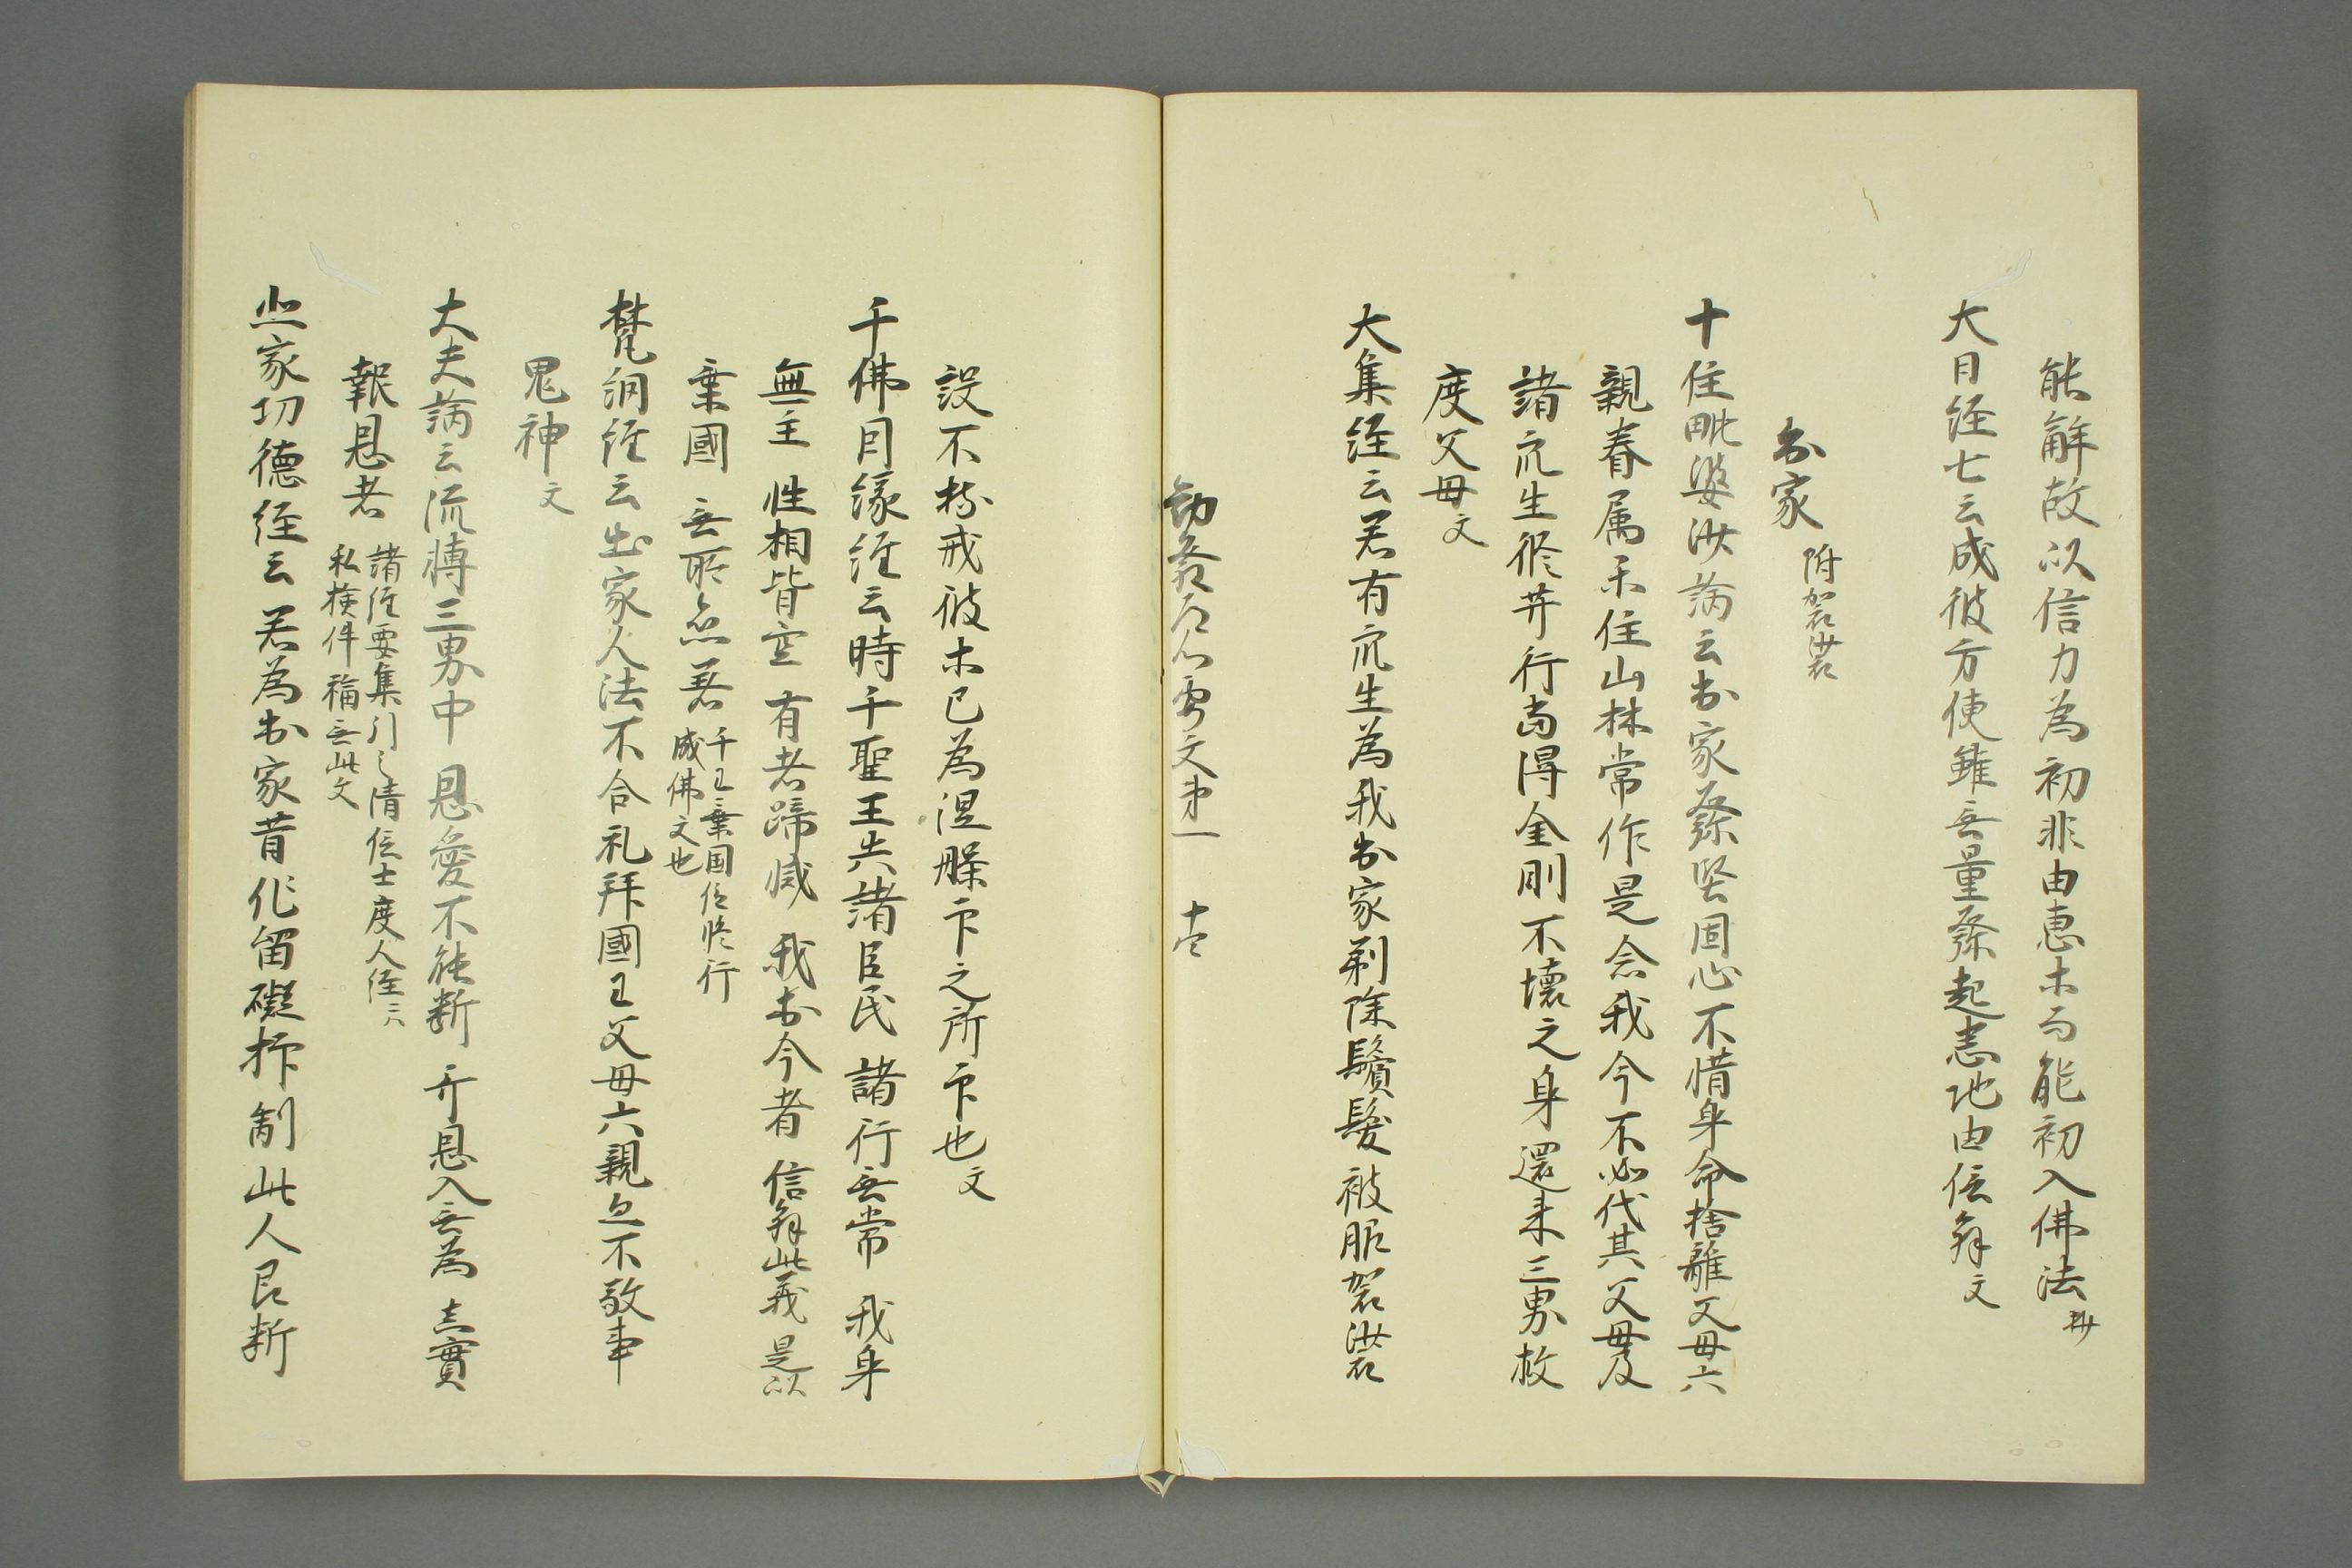 能解故以信力為初非由恵ホ而能初入佛法抄
大日経七云成彼方便雖无量發起悉地由信解文
出家 附袈裟
十住毗婆沙論云出家發堅固心不惜身命捨離父母六
親眷属樂住山林常作是念我今不必代其父母及
諸衆生修菩行尚得金剛不壊之身還来三界救
度父母文
大集経云若有衆生為我出家剃除鬚髪被服袈裟
勧發 心要文第一 十六
設不持戒彼ホ已為涅槃印之所印也文
千佛因縁経云時千聖王告諸臣民 諸行无常 我身
無主 性相皆空 有者歸滅 我出今者 信解此義 是以
棄國 无所熱著 千王棄国位修行
成佛文也
梵網経云出家人法不合礼拜國王父母六親也不敬事
鬼神文
大夫論云流轉三界中 恩愛不能断 弃恩入无為 真實
報恩者 諸経要集引之清信士度人経云
私検件 福无此文
出家功徳経云若為出家者作留礙抑制此人即断